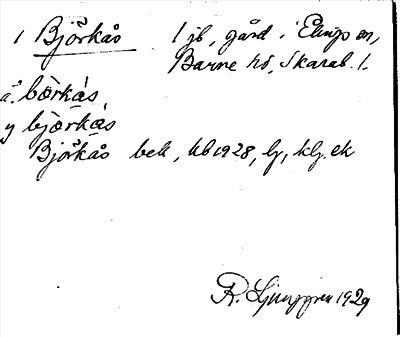 1 Björkås 1 jb, gård i Elings sn,
Barne hd, Skarab. l.
ä. bœrkás,
y bjœrkás,
Björkås bek, kb 1928, lj, klj. ek
R. Ljunggren 1929